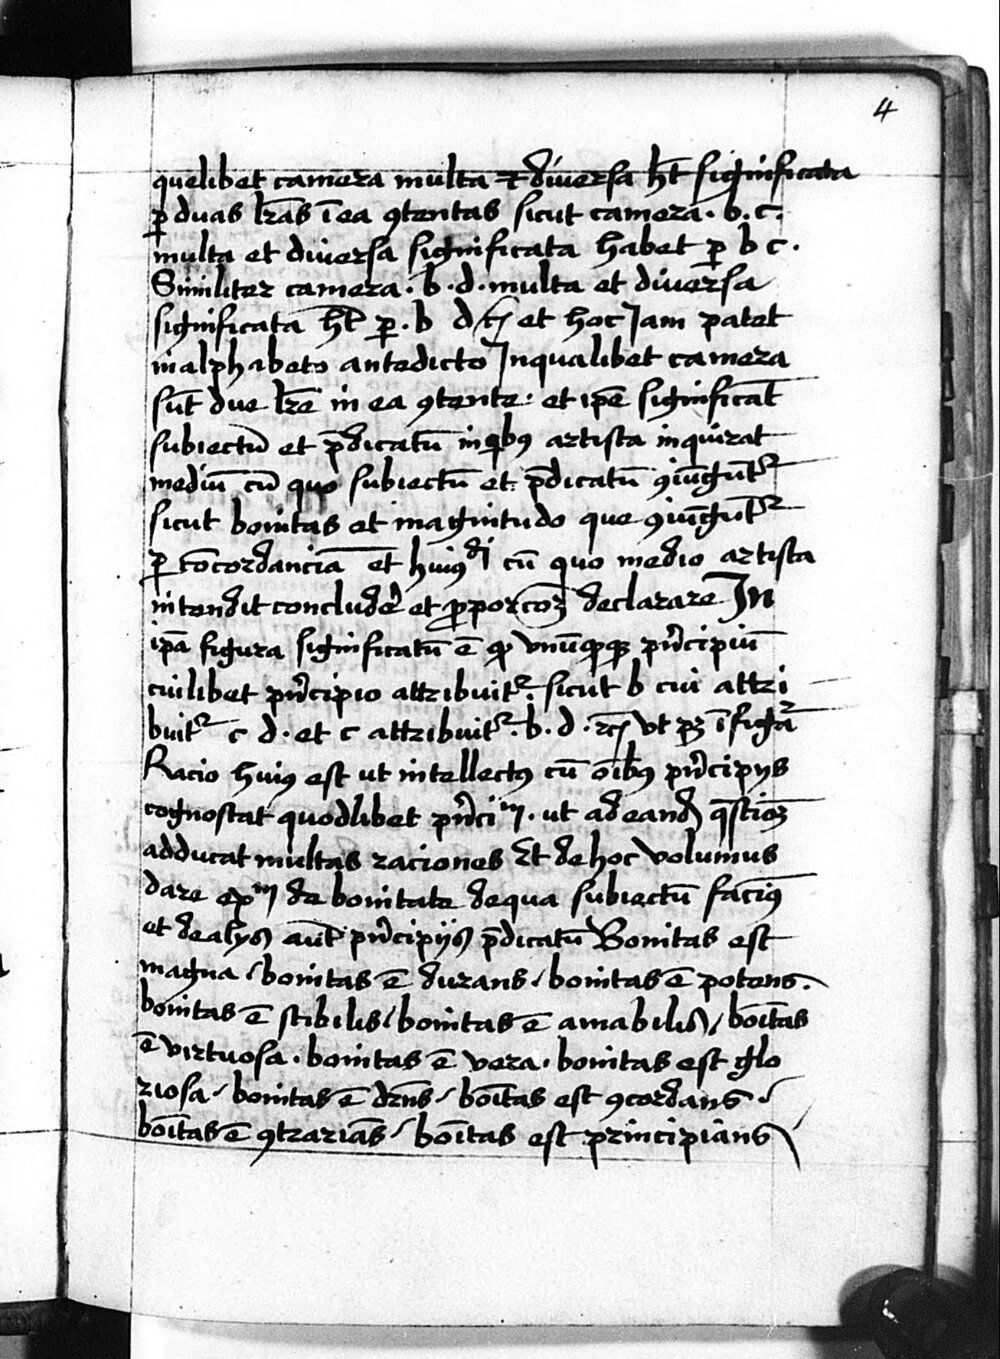 4
quelibet camera multa et diuersa ht̄ significata
ꝑ duas lr̄as ī ea ꝯtentas sicut camera. b. c.
multa et diuersa significata habet ꝑ b c.
Similiter camera. b. d. multa et diuersa
significata ht̄ ꝑ. b d et hoc Jam patet
in alphabeto antedicto Jn qualibet camera
sūt due lr̄e in ea ꝯtente. et ip̄e significāt
subiectū et p̄dicatū in qͥbꝰ artista inquirat
mediū cū quo subiectū et p̄dicatū ꝯiūgūtᷣ
sicut bonitas et magnitudo que ꝯiūgūtᷣ
ꝑ cōcordanciā et huiꝰdi cū quo medio artista
intendit concludeͬ et declarare Jn
ip̄a figura significatū ē ꝙ vnūqͦqꝫ pͥncipiū
cuilibet pͥncipio attribuitᷣ. sicut b cui attri
buitᷣ c d. et c attribuitᷣ. b. d. ⁊cͣ vt pꝫ ī figᷓa
Racio huiꝰ est ut intellectꝰ cū oībꝰ pͥncipijs
cognoscat quodlibet pͥnciᵐ. ut ad eand̄ q̄stiōꝫ
adducat multas raciones Et de hoc volumus
dare exᵐ de bonitate de qua subiectū faciꝰ
et de alijs aūt pͥncipijs p̄dicatū Bonitas est
magna / bonitas ē durans / bonitas ē potens.
bonitas ē scibilis / bonitas ē amabilis / boītas
ē virtuosa. bonitas ē vera. bonitas est glo
riosa / bonitas ē dr̄ns / boītas est ꝯcordans /
boītas ē ꝯtrariās / boītas est principians